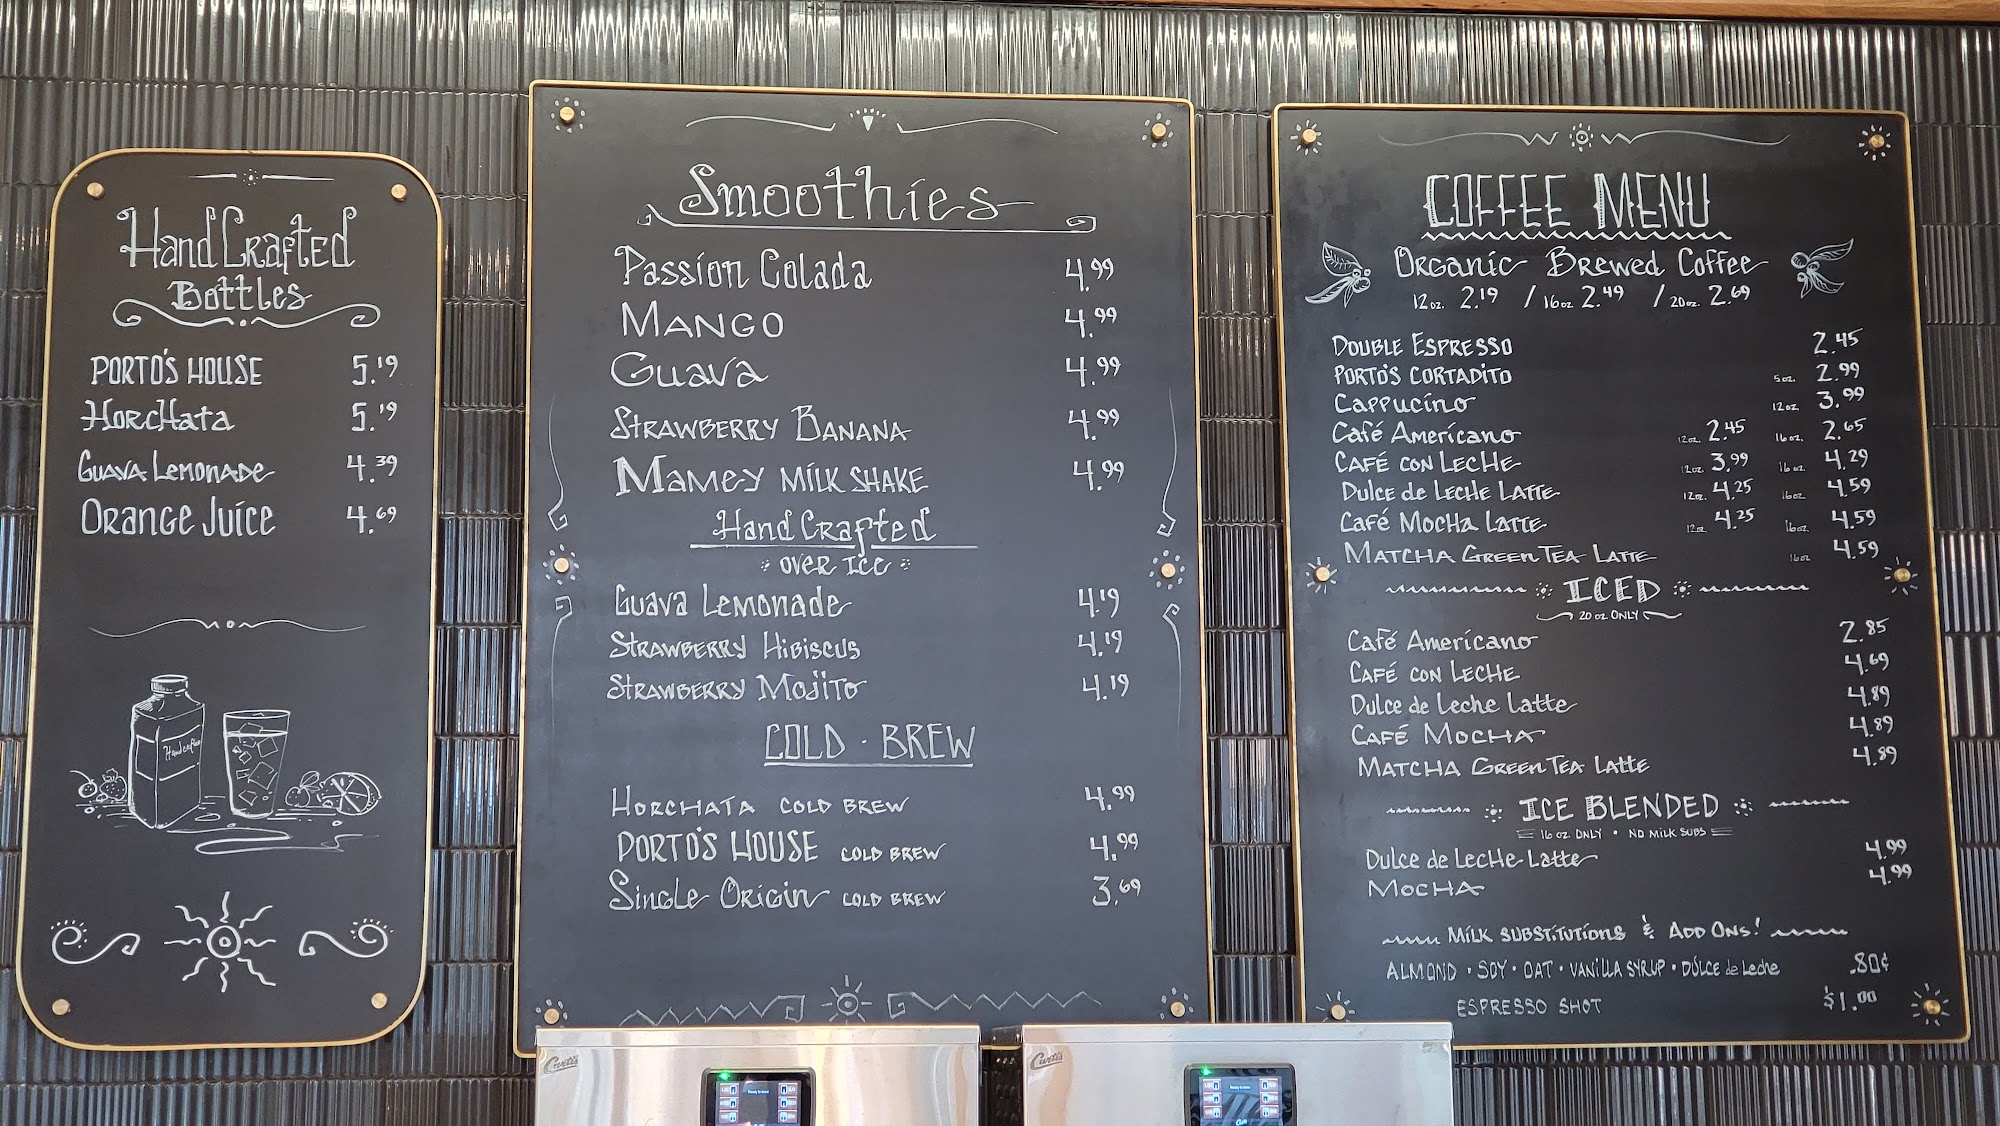 HandCrafted
Bottles
PORTO'S HOUSE 5.19
HorcHata 5.19
Guava Lemonade 4.39
Orange Juice 4.69
Smoothies
Passion Colada 4.99
MANGO 4.99
Guava 4.99
STRAWBERRY BANANA 4.99
MAMEY MILK SHAKE 4.99
HandCrafted
OVER ICE
Guava Lemonade 4.19
STRAWBERRY HIBISCUS 4.19
STRAWBERRY MOJITO 4.19
COLD · BREW
HORCHATA COLD BREW 4.99
PORTO'S HOUSE COLD BREW 4.99
Single Origin COLD BREW 3.69
COFFEE MENU
Organic Brewed Coffee
12oz. 2.19 / 16oz 2.49 / 20oz. 2.69
DOUBLE ESPRESSO 2.45
PORTO'S CORTADITO 5oz. 2.99
Cappucino 12oz 3.99
Café Americano 12oz. 2.45 16oz. 2.65
CAFÉ CON LECHE 12oz. 3.99 16oz. 4.29
Dulce de Leche Latte 12oz. 4.25 16oz. 4.59
Café Mocha Latte 12oz 4.25 16oz. 4.59
MATCHA GREEN TEA LATTE 16oz 4.59
ICED
20 oz ONLY
Café Americano 2.85
CAFÉ CON LECHE 4.69
Dulce de Leche Latte 4.89
CAFÉ MOCHA 4.89
MATCHA GREEN TEA Latte 4.89
ICE BLENDED
16 oz. ONLY • NO MILK SUBS
Dulce de Leche Latte 4.99
MOCHA 4.99
MILK SUBSTITUTIONS & ADD ONS!
ALMOND • SOY • OAT • VANILLA SYRUP • DULCE de Leche .80¢
ESPRESSO SHOT $1.00
Curtis
Curtis